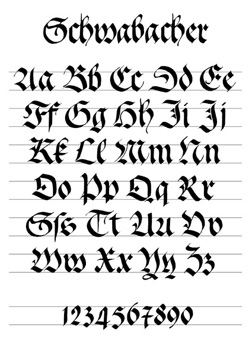 Schwabacher
Aa Bb Cc Dd Ee
Ff Gg Hh Ii Jj
Kk Ll Mm Nn
Oo Pp Qq Rr
Sſs Tt Uu Vv
Ww Xx Yy Zz
1234567890